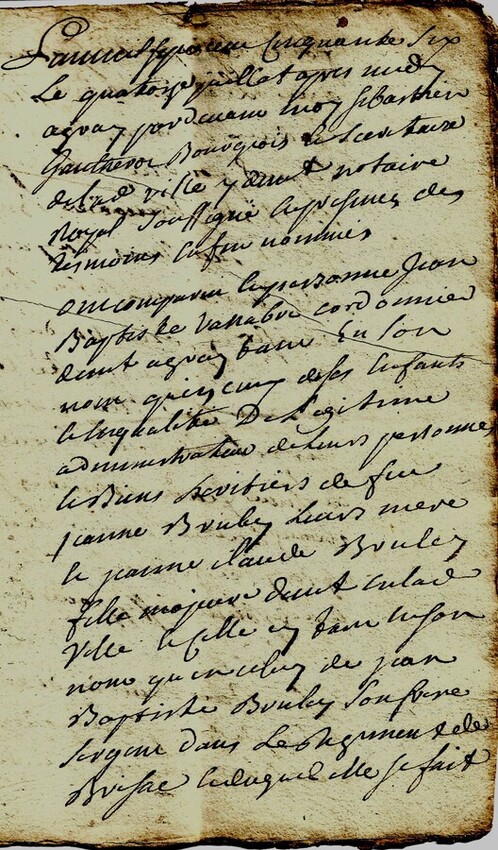 L'an mil sept cent cinquante six
Le quatorze juillet apres midy
a gray pardevant moy sebastien
Gautherot Bourgeois et secretaire
de lad ville y demt notaire
Royal soussigné en presence des
tesmoins enfin nommes
ont comparu en personne Jean
Baptiste cordonnier
demt a gray tant En son
nom qu'en de ses Enfants
en qualité De legitime
administrateur de leurs personnes
et Biens heritiers de feu
jeanne Bruley Leurs mere
et jeanne claude Bruley
fille majeure demt en lad
ville et elle en tant en son
nom qu'en celuy de jean
Baptiste Bruley son frere
sergent dans Le Regiment de
Brisac duquel elle se fait